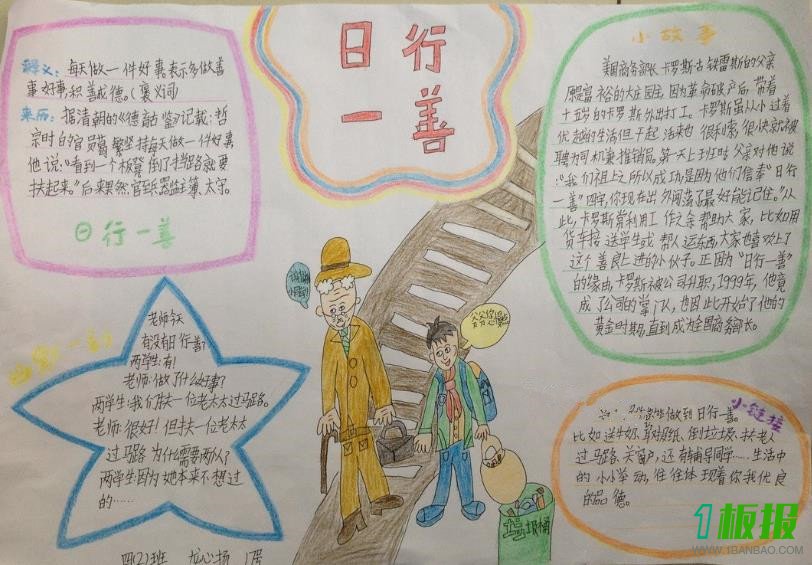 日行
一善
释义：每天做一件好事,表示多做善
事好事,积善成德。(褒义词)
来历：据清朝的《德育古鉴》记载:哲
宗时的官员葛繁坚持每天做一件好事
他说:“看到一个板凳倒了挡路就要
扶起来。”后来果然,官至器监主簿、太守。
日行一善
小故事
美国商务部长卡罗斯·古铁雷斯的父亲
原是富裕的大庄园主,因为革命破产后,带着
十五岁的卡罗斯外出打工。卡罗斯虽从小过着
优越的生活但干起活来也很利索,很快就被
聘为司机兼推销员。第一天上班时父亲对他说
:“我们祖上之所以成功是因为他们信奉“日行
一善”四字,你现在出外闯荡了最好能记住。”从
此,卡罗斯常利用工作之余帮助大家,比如用
货车接送学生或帮人运东西,大家也喜欢上了
这个善良上进的小伙子。正因为“日行一善”
的缘由,卡罗斯被公司升职,1999年,他竟
成了公司的掌门人,也因此开始了他的
黄金时期,直到成为全国商务部长。
老师:今天
有没有日行善?
两学生:有!
老师:做了什么好事?
两学生:我们扶一位老太太过马路。
老师:很好!但扶一位老太太
过马路为什么需要两个人?
两学生:因为她本来不想过
的……
小链接
做到日行一善。
比如送牛奶、倒垃圾、扶老人
过马路、关窗户,还有辅导同学……生活中
的小小举动,往往体现着你我优良
的品德。
垃圾桶
四(2)班
1板报
WWW.1BANBAO.COM